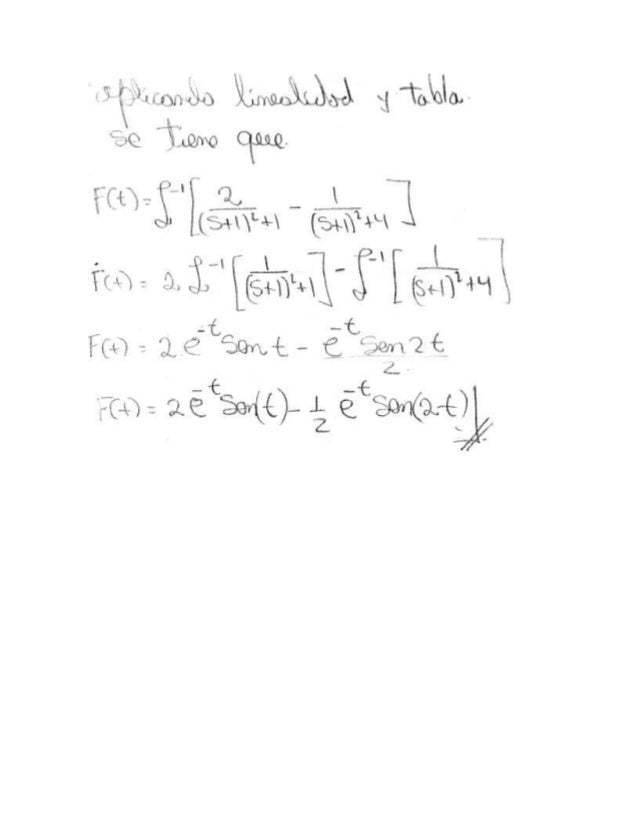 aplicando linealidad y tabla.
se tiene que.
F(t) = ℒ⁻¹ [ 2/((S+1)²+1) - 1/((S+1)²+4) ]
F(t) = 2 ℒ⁻¹ [ 1/((S+1)²+1) ] - ℒ⁻¹ [ 1/((S+1)²+4) ]
F(t) = 2 e⁻ᵗ Sen t - e⁻ᵗ Sen 2t / 2.
F(t) = 2 e⁻ᵗ Sen(t) - 1/2 e⁻ᵗ Sen(2t)